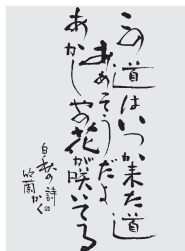 この道はいつか来た道
ああそうだよ
あかしやの花が咲いてる
白秋の詩
かく